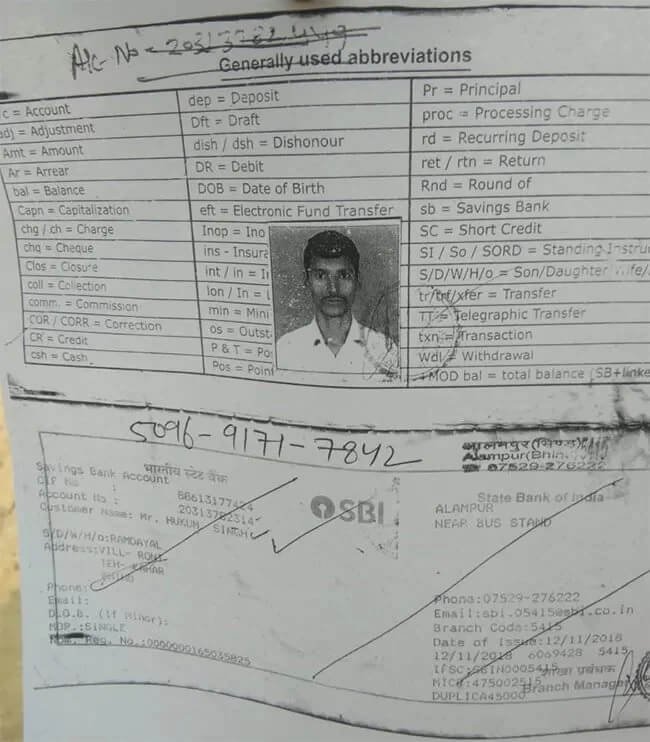 A/c No = 20313782449
Generally used abbreviations
c = Account
adj = Adjustment
Amt = Amount
Ar = Arrear
bal = Balance
Capn = Capitalization
chg / ch = Charge
chq = Cheque
Clos = Closure
coll = Collection
comm. = Commission
COR / CORR = Correction
CR = Credit
csh = Cash
dep = Deposit
Dft = Draft
dish / dsh = Dishonour
DR = Debit
DOB = Date of Birth
eft = Electronic Fund Transfer
Inop = Ino
ins - Insura
int / in = I
Ion / In =
min = Mini
os = Outst
P & T = Po
Pos = Poin
Pr = Principal
proc = Processing Charge
rd = Recurring Deposit
ret / rtn = Return
Rnd = Round of
sb = Savings Bank
SC = Short Credit
SI / So / SORD = Standing Instruc
S/D/W/H/o = Son/Daughter Wife/
tr/trf/xfer = Transfer
TT = Telegraphic Transfer
txn = Transaction
Wdl = Withdrawal
+MOD bal = total balance (SB+linke
5096-9171-7842
भारतीय स्टेट बैंक
Savings Bank Account
Cif No :
88613177424
Account No :
20313782314
Customer Name: Mr. HUKUM SINGH
S/D/W/H/o:RAMDAYAL
Address:VILL- ROHI
TEH-
BHIND
Phone:
Email:
D.O.B. (if Minor):
MOP.:SINGLE
Nom. Reg. No.:0000000165035825
SBI
आलमपुर
Alampur(Bhin
07529-276222
State Bank of India
ALAMPUR
NEAR BUS STAND
Phone:07529-276222
Email:sbi.05415@sbi.co.in
Branch Code:5415
Date of Issue:12/11/2018
12/11/2018 6069428 5415
IFSC:SBIN0005415
शाखा प्रबंधक
MICR:475002515
Branch Manager
DUPLICA45000